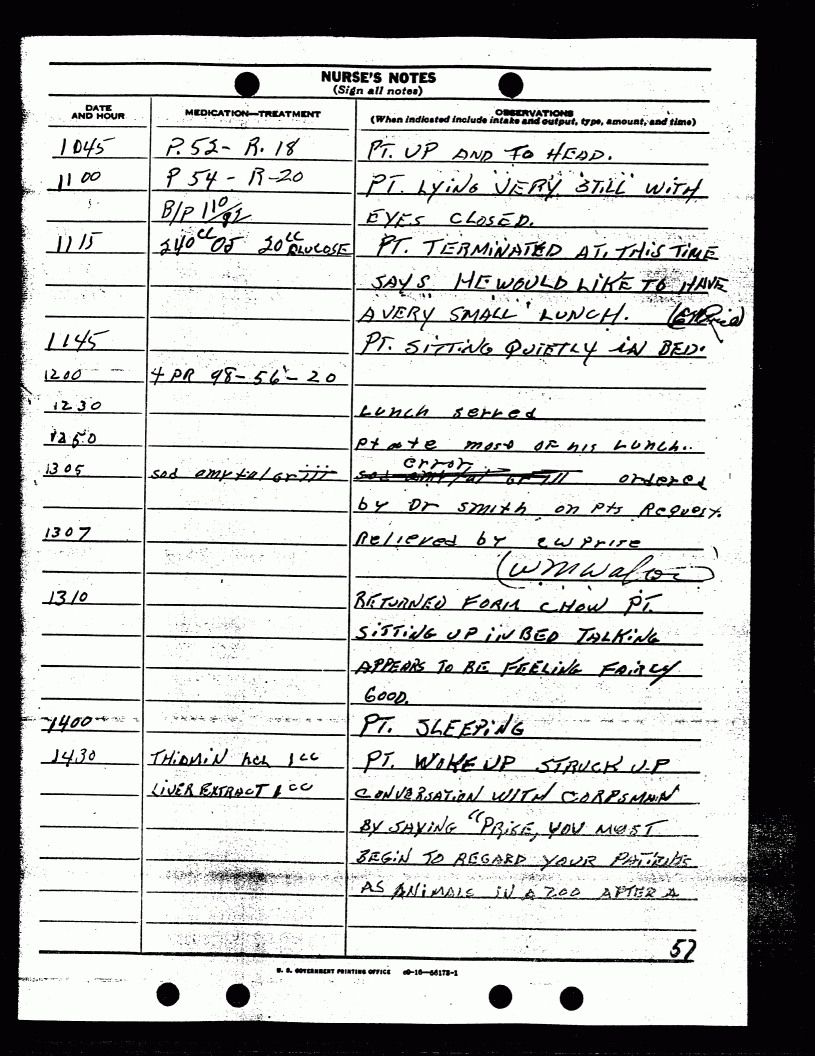 NURSE'S NOTES
(Sign all notes)
DATE AND HOUR MEDICATION—TREATMENT OBSERVATIONS (When indicated include intake and output, type, amount, and time)
1045 P. 52- R. 18 PT. UP AND TO HEAD.
1100 P 54 - R-20 PT. LYING VERY STILL WITH
B/P 110/ EYES CLOSED.
1115 240cc OJ 20cc GLUCOSE PT. TERMINATED AT THIS TIME
SAYS HE WOULD LIKE TO HAVE
A VERY SMALL LUNCH.
1145 PT. SITTING QUIETLY IN BED.
1200 TPR 98-56-20
1230 Lunch served
1250 Pt ate most of his Lunch.
1305 sod amytal gr iii error sod amytal gr iii ordered
by Dr Smith on pts Request.
1307 Relieved by EW Prise
1310 RETURNED FORM CHOW PT.
SITTING UP IN BED TALKING
APPEARS TO BE FEELING FAIRLY
GOOD.
1400 PT. SLEEPING
1430 THIAMIN HCL 1cc PT. WOKE UP STRUCK UP
LIVER EXTRACT 1cc CONVERSATION WITH CORPSMAN
BY SAYING "PRISE, YOU MUST
BEGIN TO REGARD YOUR PATIENTS
AS ANIMALS IN A ZOO AFTER A
57
U. S. GOVERNMENT PRINTING OFFICE 60-16—66173-1